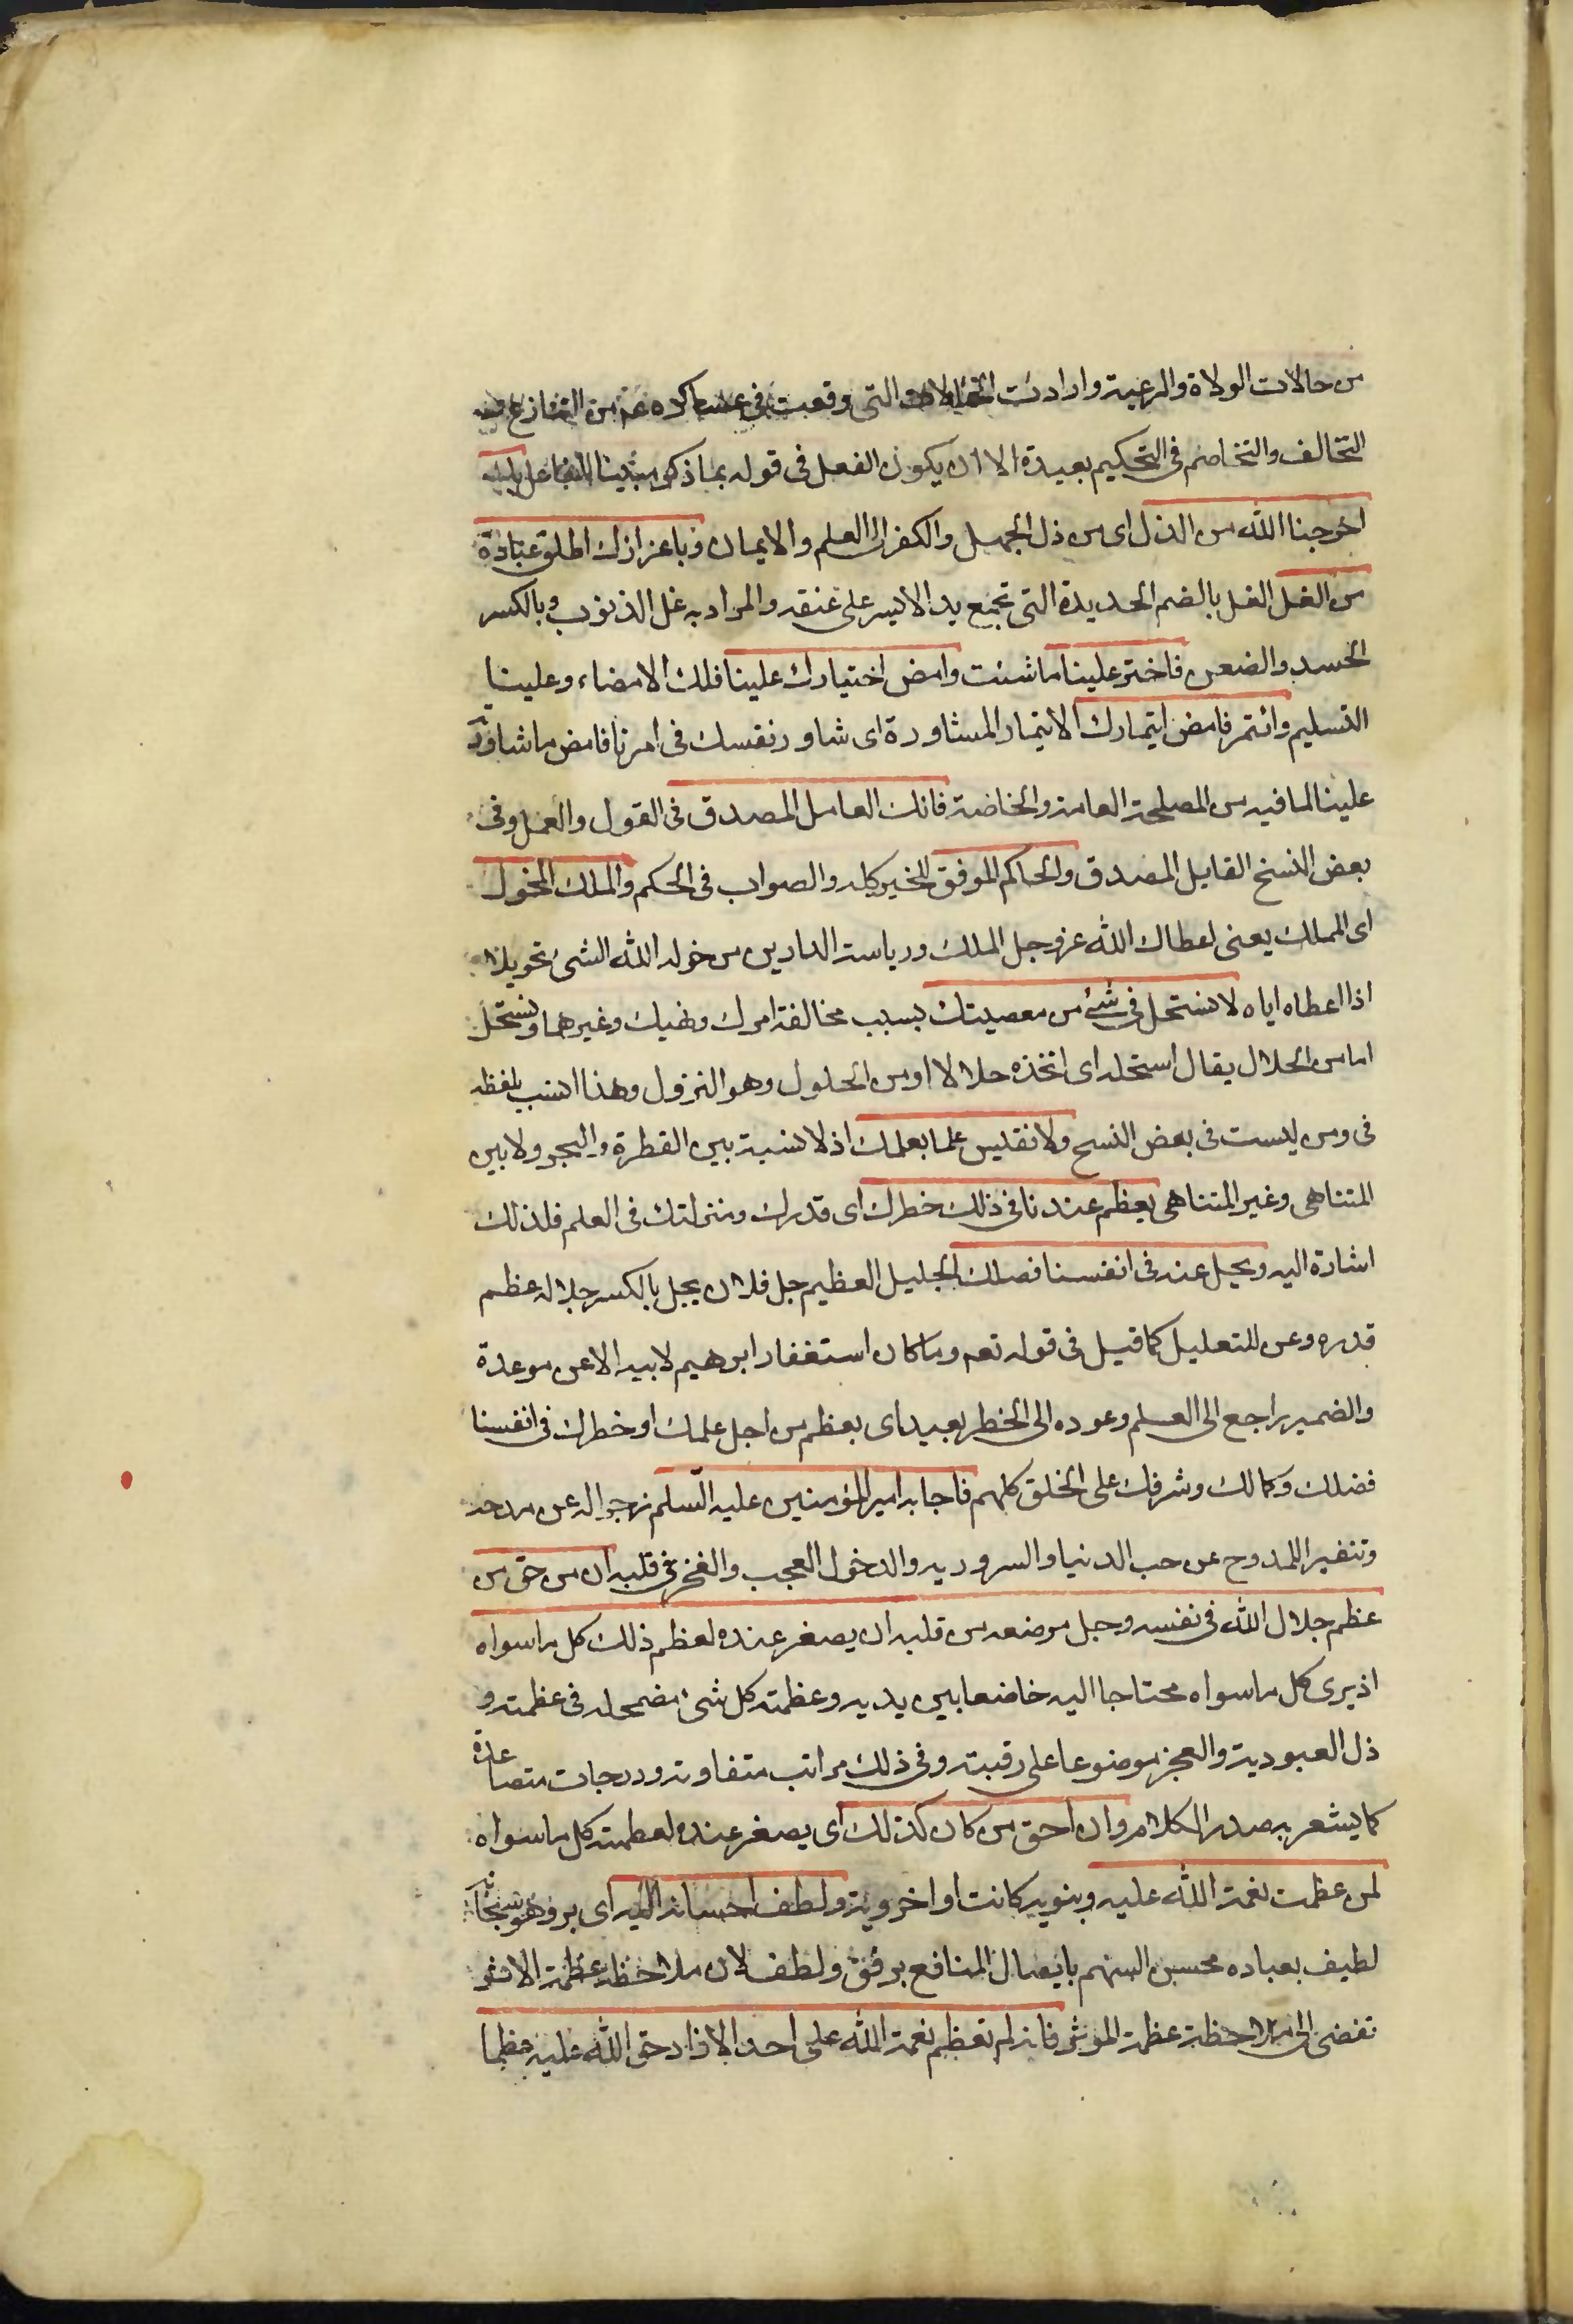 من حالات الولاة والرعية وارادت الحالات التى وقعت فى عساكره عم من التنازع
التخالف والتخاصم فى التحكيم بعيدة الا ان يكون الفعل فى قوله بما ذكر مبنيا للفاعل
اخرجنا الله من الذل اى من ذل الجهل والكفر الى العلم والايمان وباعزازك اطلق عباده
من الغل الغل بالضم الحديدة التى تجمع يد الاسير على عنقه والمراد به غل الذنوب وبالكسر
الحسد والضغن فاختر علينا ما شئت وامض اختيارك علينا فلك الامضاء وعلينا
التسليم وائتمر فامض ايتمارك الايتمار المشاورة اى شاور نفسك فى امرنا فامض ما شاورت
علينا لما فيه من المصلحة العامة والخاصة فانك العامل المصدق فى القول والعمل وفى
بعض النسخ القايل المصدق والحاكم الموفق للخير كله والصواب فى الحكم والملك المخول
اى المملك يعنى اعطاك الله عز وجل الملك ورياسة الدارين من خوله الله الشئ تخويلا
اذا اعطاه اياه لا نستحل فى شئ من معصيتك بسبب مخالفة امرك ونهيك وغيرهما ونستحل
اما من الحلال يقال استحله اى اتخذه حلالا او من الحلول وهو النزول وهذا انسب بلفظه
فى ومن ليست فى بعض النسخ ولا نقيس علما بعلمك اذ لا نسبة بين القطرة والبحر ولا بين
المتناهى وغير المتناهى يعظم عندنا فى ذلك خطرك اى قدرك ومنزلتك فى العلم فلذلك
اشارة اليه ويجل عنه فى انفسنا فضلك الجليل العظيم جل فلان يجل بالكسر جلالة عظم
قدره وعن للتعليل كما قيل فى قوله تعم وما كان استغفار ابرهيم لابيه الا عن موعدة
والضمير راجع الى العلم وعوده الى الخطر بعيد اى يعظم من اجل علمك او خطرك فى انفسنا
فضلك وكمالك وشرفك على الخلق كلهم فاجابه امير المؤمنين عليه السلم زجرا له عن مدحه
وتنفيرا للمدوح عن حب الدنيا والسرور به والدخول العجب والفخر فى قلبه ان من حق من
عظم جلال الله فى نفسه وجل موضعه من قلبه ان يصغر عنده لعظم ذلك كل ما سواه
اذ يرى كل ما سواه محتاجا اليه خاضعا بين يديه وعظمته كل شئ مضمحله فى عظمته و
ذل العبودية والعجز موضوعا على رقبته وفى ذلك مراتب متفاوته ودرجات متصاعدة
كما يشعر به صدر الكلام وان احق من كان كذلك اى يصغر عنده لعظمته كل ما سواه
لمن عظمت نعمة الله عليه دنيويه كانت او اخروية ولطف احسانه اليه اى بر وهو سبحانه
لطيف بعباده محسن اليهم بايصال المنافع برفق ولطف لان ملاحظة عظمة الاثر
تفضى الى ملاحظة عظمة الموثر فانه لم تعظم نعمة الله على احد الا زاد حق الله عليه عظما